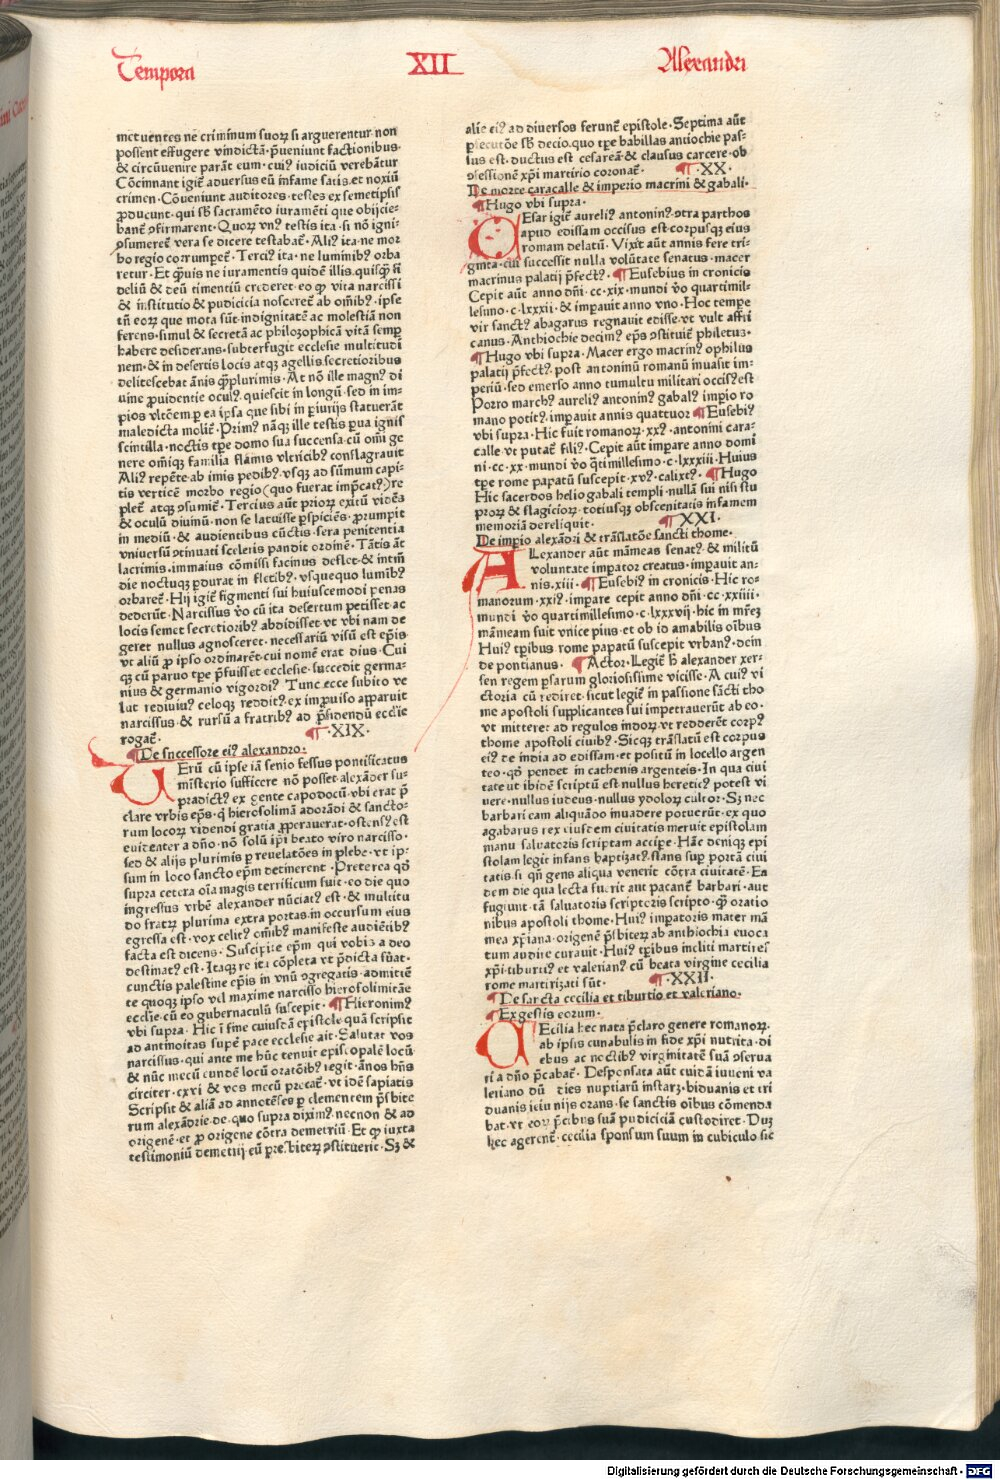 Tempora XII Alexandri
metuentes ne criminum suoꝝ si arguerentur non
possent effugere vindictā·p̄ueniunt factionibus·
& circūuenire parāt eum·cui⁹ iudiciū verebātur
Cōcinnant igit̄ aduersus eū infame satis·et noxiū
crimen·Cōueniunt auditores·testes ex semetipsis
ꝓducunt·qui sb̄ sacramēto iuramēti que obijcie-
banẽ ꝯfirmarent·Quoꝝ vn⁹ testis ita·si nō igni·
ꝯsumeret̄ vera se dicere testabat̄·Ali⁹ ita·ne mor
bo regio corrumpet̄·Terci⁹ ita·ne luminib⁹ orba
retur·Et qͣuis ne iuramentis quidē illis quisqͣ fi
deliū & deū timentiū crederet·eo ꝙ vita narcissi
& institutio & pudicicia nosceret̄ ab om̄ib⁹·ipse
tn̄ eoꝝ que mota sūt·indignitatē ac molestiā non
ferens·simul & secretā ac philozophicā vitā semꝑ
habere desiderans·subterfugit ecclesie multitudi
nem·& in desertis locis atqꝫ agellis secretioribus
delitescebat ānis qͣplurimis·At nō ille magn⁹ di
uine ꝓuidentie ocul⁹ quiescit in longū·sed in im-
pios vltōem ꝑ ea ipsa que sibi in ꝑiurijs statuerāt
maledicta molit̄·Prim⁹ nāqꝫ ille testis ꝑua ignis
scintilla·noctis tp̄e domo sua succensa·cū om̄i ge
nere om̄iqꝫ familia flāmis vltricib⁹ conflagrauit
Ali⁹ repēte·ab imis pedib⁹·vsqꝫ ad sūmum capi-
tis verticē morbo regio(quo fuerat imp̄cat⁹)re
plet̄ atqꝫ ꝯsumit̄·Tercius aūt prioꝝ exitū vidēs
& oculū diuinū·non se latuisse ꝑspiciēs·ꝓrumpit
in mediū·& audientibus cūctis·sera penitentia
vniuersū ꝯcinuati sceleris pandit ordinē·Tātis āt
lacrimis·immaius cōmissi facinus deflet·& intm̄
die noctuqꝫ ꝑdurat in fletib⁹·vsquequo lumib⁹
orbaret̄·Hij igit̄ figmenti sui huiuscemodi penas
dederūt·Narcissus v̄o cū ita desertum petisset·ac
locis semet secretiorib⁹ abdidisset·vt vbi nam de
geret nullus agnosceret·necessariū visū est ep̄is
vt aliū ꝓ ipso ordinarēt·cui nomē erat dius·Cui
qꝫ cū paruo tp̄e p̄fuisset ecclesie·succedit germa-
nius & germanio vigordi⁹ Tunc ecce subito ve
lut rediuiu⁹ celoqꝫ reddit⁹·ex imꝓuiso apparuit
narcissus·& rursū a fratrib⁹ ad p̄sidendū ecclīe
rogat̄· ·XIX·
De successore ei⁹ alexandro·
UErū cū ipse iā senio fessus pontificatus
misterio sufficere nō posset·alexāder su-
pradict⁹ ex gente capodocū·vbi erat p̄
clare vrbis ep̄s·q̄ hierosolimā adorādi & sancto-
rum locoꝝ videndi gratia ꝓperauerat·ostens⁹ est
euidenter a dn̄o·nō solū ip̄i beato viro narcisso·
sed & alijs plurimis ꝑ reuelatōes in plebe·vt ip-
sum in loco sancto ep̄m detinerent·Preterea qd̄
supra cetera oīa magis terrificum fuit·eo die quo
ingressus vrbē alexander nūciat⁹ est·& multitu
do fratꝝ plurima extra portas·in occursum eius
egressa est·vox celit⁹ om̄ib⁹ manifeste audiētib⁹
facta est dicens·Suscipite ep̄m qui vobis a deo
destinat⁹ est·Itaqꝫ re ita cōpleta vt p̄dicta fūat·
cunctis palestine ep̄is in vnū ꝯgregatis·admitiē
te quoqꝫ ipso vel maxime narcisso hierosolimitāe
ecclīe·cū eo gubernaculū suscepit·¶Hieronim⁹
vbi supra·Hic ī fine cuiusdā epistole quā scripsit
ad antinoitas supē pace ecclesie ait·Salutat vos
narcissus·qui ante me hūc tenuit episcopalē locū
& nūc mecū eundē locū oratōib⁹ regit·ānos hn̄s
circiter·cxvi & vos mecū precat̄·vt idē sapiatis
Scripsit & aliā ad annotēses ꝑ clementem p̄sbite
rum alexādrie·de quo supra dixim⁹·necnon & ad
origenē·et ꝓ origene cōtra demetriū·Et ꝙ iuxta
testimoniū demetrij eū presbiteꝝ ꝯstituerit·Sꝫ &
alie ei⁹ ad diuersos ferunt̄ epistole·Septima aūt
ꝑsecutōe sb̄ decio·quo tp̄e babillas antiochie pas-
sus est·ductus est cesareā·& clausus carcere·ob
ꝯfessionē xp̄i martirio coronat̄· ¶·XX·
De morte caracalle & imperio macrini & gabali·
¶Hugo vbi supra·
CEsar igit̄ aureli⁹ antonin⁹ ꝯtra parthos
apud edissam occisus est·corpusqꝫ eius
romam delatū·Vixit aūt annis fere tri-
ginta·cui successit nulla volūtate senatus·macer
macrinus palatij p̄fect⁹·¶Eusebius in cronicis
Cepit aūt anno dn̄i·cc·xix·mundi v̄o quartimil-
lesimo·c·lxxxii·& imꝑauit anno vno·Hoc tempe
vir sanct⁹ abagarus regnauit edisse·vt vult affri
canus·Anthiochie decim⁹ ep̄s ꝯstituit̄ philetus·
¶Hugo vbi supra·Macer ergo macrin⁹ ophilus
palatij p̄fect⁹·post antoninū romanū inuasit im-
periū·sed emerso anno tumultu militari occis⁹ est
Porro march⁹ aureli⁹ antonin⁹ gabal⁹ imꝑio ro
mano potit⁹·imꝑauit annis quattuor ¶Eusebi⁹
vbi supra·Hic fuit romanoꝝ·xx⁹·antonini cara-
calle·vt putat̄ fili⁹·Cepit aūt imꝑare anno domi
ni·cc·xx·mundi v̄o q̄rtimillesimo·c·lxxxiii·Huius
tp̄e rome papatū suscepit·xv⁹·calixt⁹·¶Hugo
Hic sacerdos heliogabali templi·nullā sui nisi stu
proꝝ & flagicioꝝ·totiusqꝫ obscenitatis infamem
memoriā dereliquit· ¶·XXI·
De imꝑio alexādri & trāslatōe sancti thome·
ALexander aūt māmeas senat⁹·& militū
voluntate imꝑator creatus·imꝑauit an-
nis·xiii·¶Eusebi⁹ in cronicis·Hic ro-
manorum·xxi⁹·impare cepit anno dn̄i·cc·xxiiii·
mundi v̄o quartimillesimo·c·lxxxvij·hic in mr̄eꝫ
māmeam fuit vnice pius·et ob id amabilis oībus
Hui⁹ tp̄ibus rome papatū suscepit vrban⁹·dein
de pontianus· ¶Actor·Legit̄ b̄ alexander xer-
sen regem ꝑsarum gloriosissime vicisse·A cui⁹ vi
ctoria cū rediret·sicut legit̄ in passione sācti tho
me apostoli supplicantes sui impetrauerūt ab eo·
vt mitteret ad regulos indoꝝ·vt redderēt corp⁹
thome apostoli ciuib⁹·Sicqꝫ trāslatū est corpus
ei⁹ de india ad edissam·et positū in locello argen
teo·qd̄ pendet in cathenis argenteis·In qua ciui
tate vt ibidē scriptū est·nullus heretic⁹ potest vi
uere·nullus iudeus·nullus ydoloꝝ cultor·Sꝫ nec
barbari eam aliquādo inuadere potuerūt·ex quo
agabarus rex eiusdem ciuitatis meruit epistolam
manu saluatoris scriptam accipe·Hāc deniqꝫ epi
stolam legit infans baptizat⁹·stans suꝑ portā ciui
tatis·si qn̄ gens aliqua venerit cōtra ciuitatē·Ea
dem die qua lecta fuerit aut pacant̄ barbari·aut
fugiunt·tā saluatoris scriptoris scripto·qͣ oratio
nibus apostoli thome·Hui⁹ imꝑatoris mater mā
mea xp̄iana·origenē p̄sbiteꝝ ab anthiochia euoca
tum audire curauit·Hui⁹ tp̄ibus incliti martires
xp̄i·tiburti⁹ et valerian⁹ cū beata virgine cecilia
rome martirizati sūt· ¶·XXII·
¶De sancta cecilia et tiburtio et valeriano·
¶Ex gestis eorum·
CEcilia hec nata p̄claro genere romanoꝝ·
ab ipsis cunabulis in fide xp̄i nutrita·di
ebus ac noctib⁹ virginitatē suā ꝯserua
ri a dn̄o p̄cabat̄·Desponsata aūt cuidā iuueni va
leriano dū dies nuptiarū instaꝝ·biduanis et tri
duanis ieiunijs orans·se sanctis oībus cōmenda
bat·vt eoꝝ p̄cibus suā pudiciciā custodiret·Duꝫ
hec agerent̄·cecilia sponsum suum in cubiculo sic
Digitalisierung gefördert durch die Deutsche Forschungsgemeinschaft - DFG